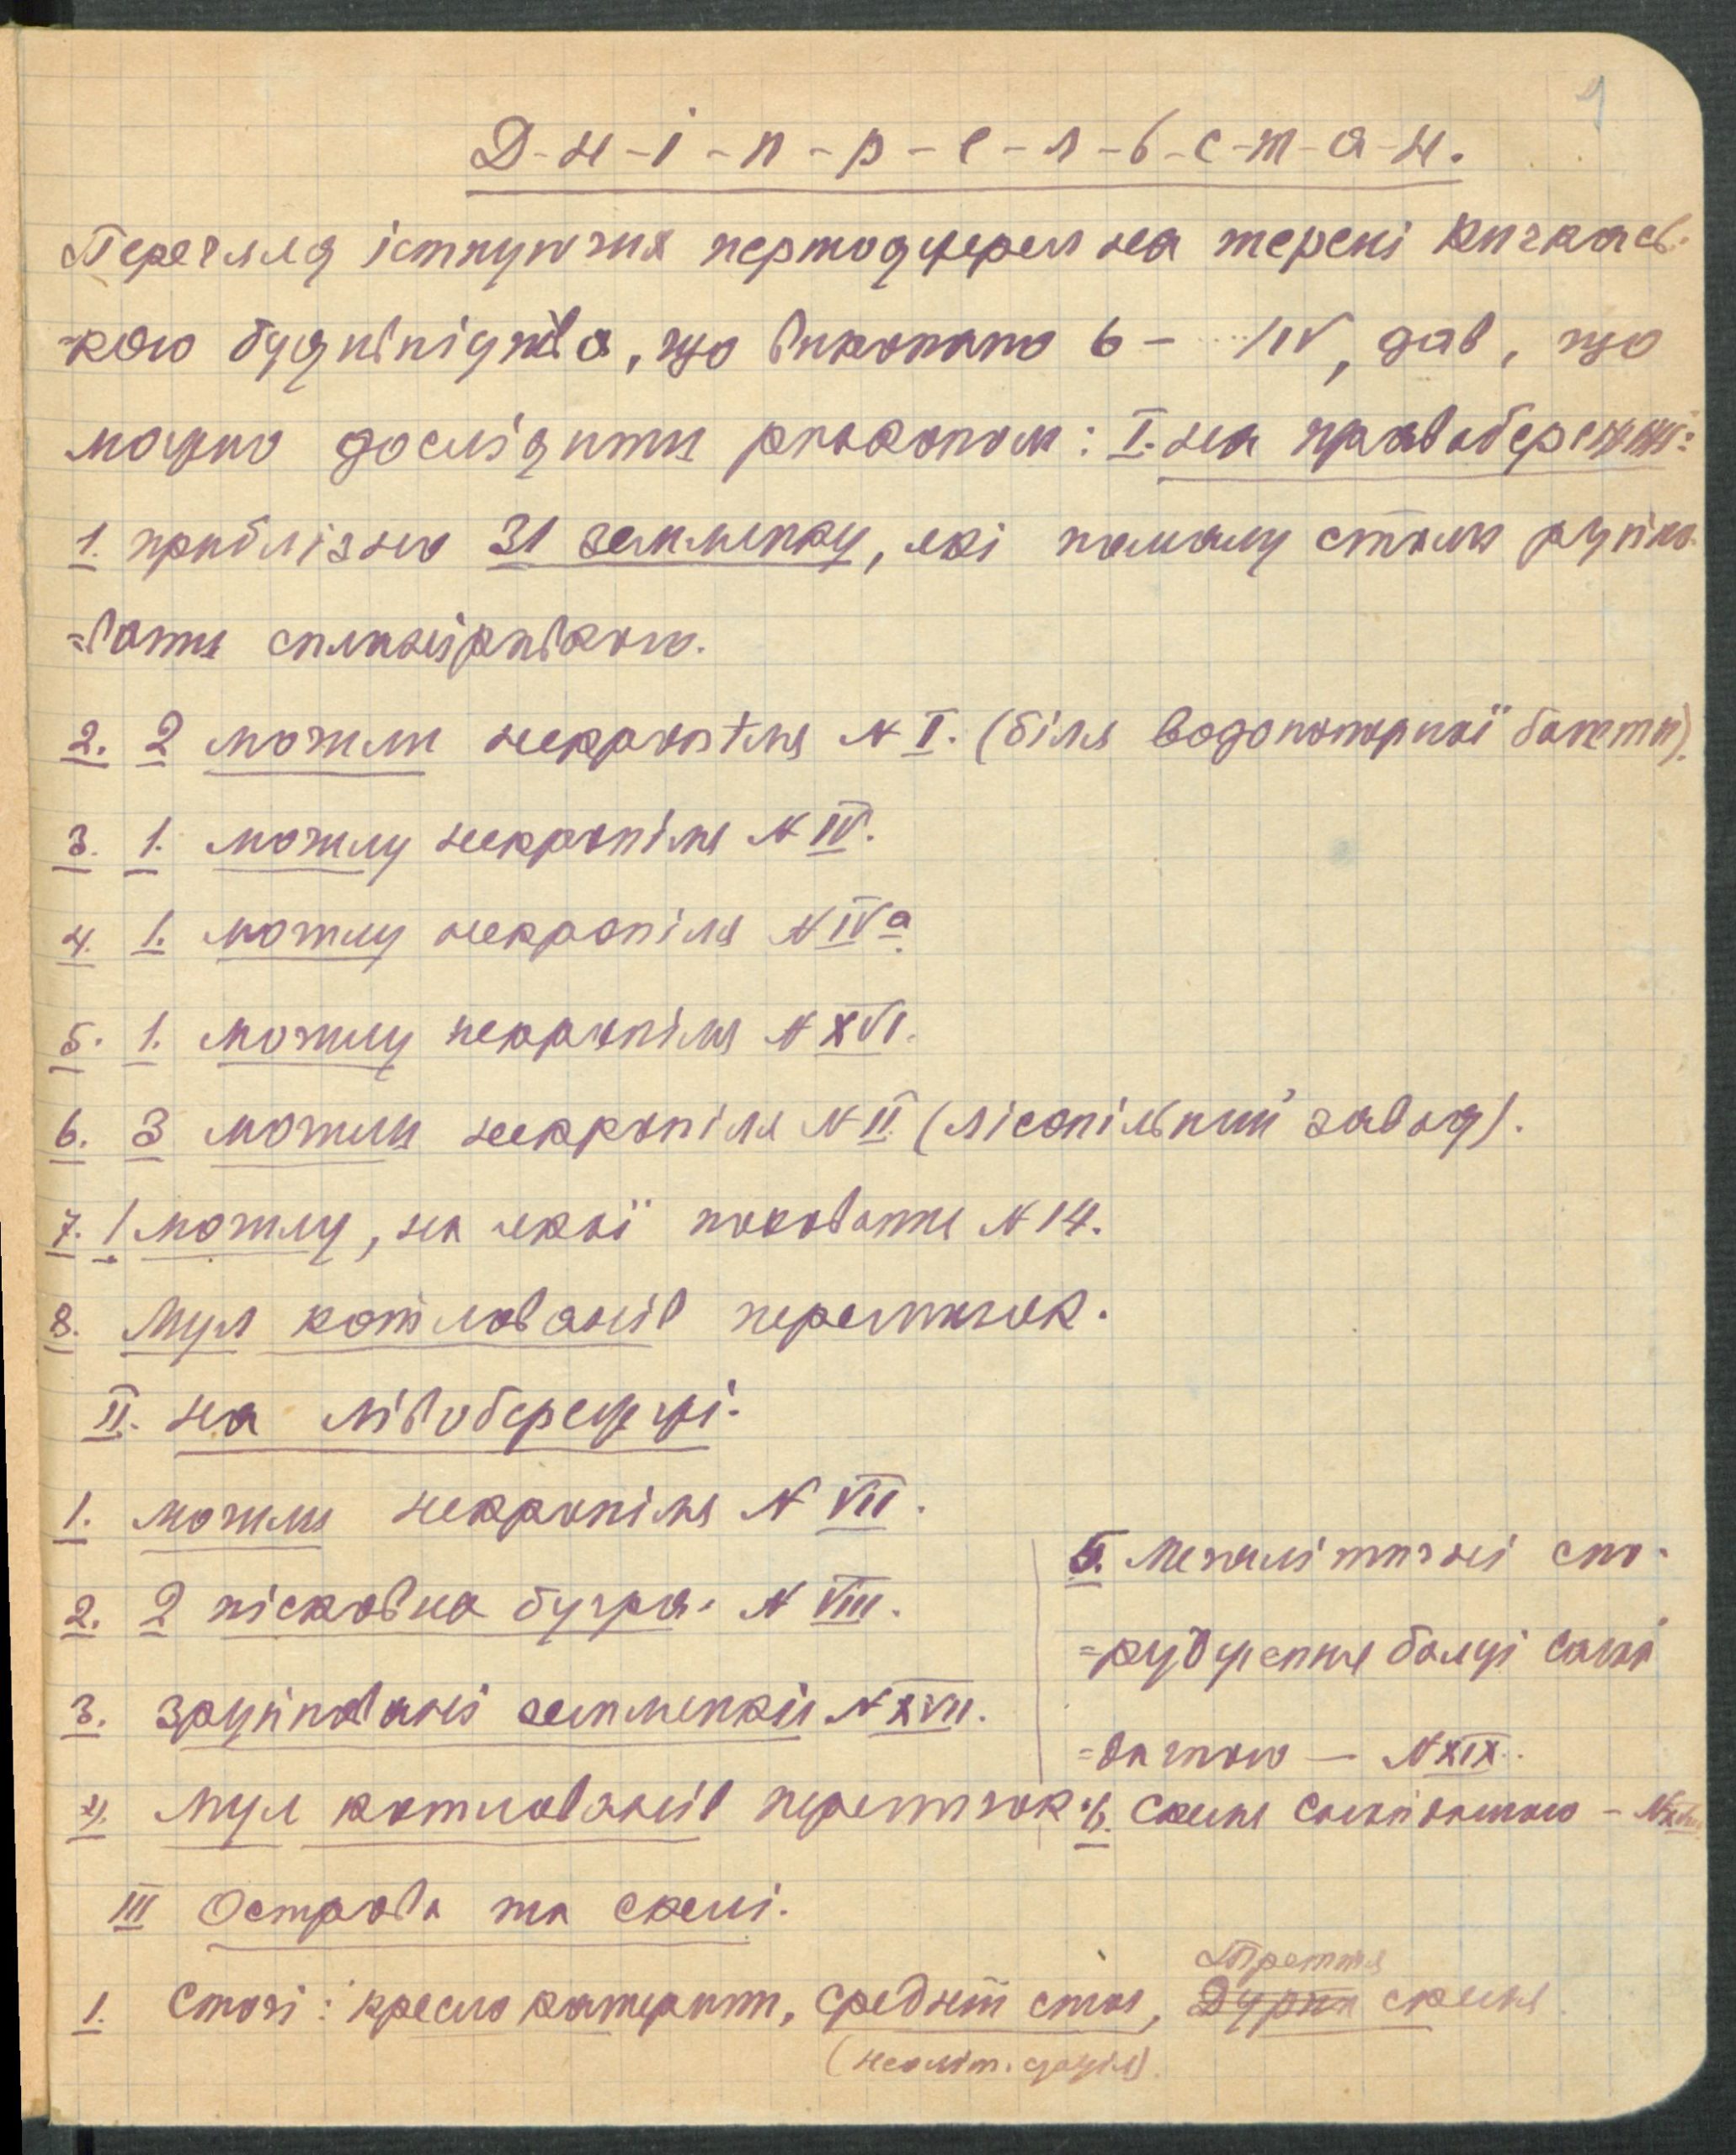 1
Д-н-і-п-р-е-л-ь-с-т-а-н.
Перегляд істнуючих першоджерел на терені Кичкась-
кого будівніцтва, що виконано 6 – IV, дав, що
можно дослідити розкопом: I. на правобережжі:
1. прибліз но 31 землянку, які помалу стали руйно-
=вати спланіровкою.
2. 2 могили некрополя N I. (біля водонапорної башти).
3. 1. могилу некропіля N IV.
4. 1. могилу некропіля N IVа.
5. 1. могилу некропіля N XVI.
6. 3 могили некропіля N II (лісопільний завод).
7. 1 могилу, на якої поховання N 14.
8. Мул котлованів перемичок.
II. на лівобережжі.
1. могили некропіля N VII.
2. 2 піскових бугра. N VIII.
3. зруйновані землянкі N XVII.
4. Мул котлованів перемичок.
5. Мегалітичні спо-
=рудження балці Сагай
=дачного — N XIX.
6. Скеля Сагайдачного –
III Острова та скелі.
1. Стогі: кресло катерини, средній стог, Третя скеля.
(неоліт. стація).